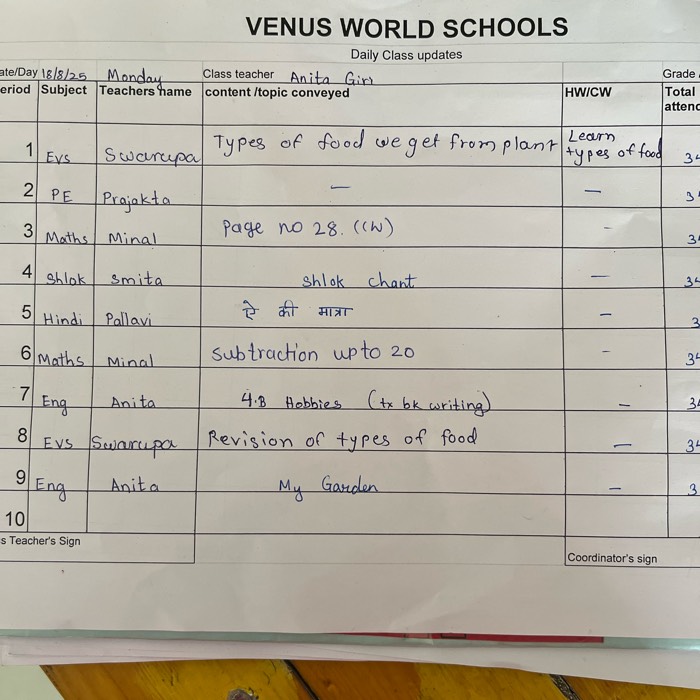 VENUS WORLD SCHOOLS
Daily Class updates
ate/Day 18/8/25 Monday Class teacher Anita Giri Grade
eriod Subject Teachers name content /topic conveyed HW/CW Total
attend
1 Evs Swarupa Types of food we get from plant Learn types of food 34
2 PE Prajakta — — 3
3 Maths Minal Page no 28. (CW) - 34
4 Shlok Smita Shlok chant — 34
5 Hindi Pallavi ऐ की मात्रा - 3
6 Maths Minal Subtraction upto 20 - 34
7 Eng Anita 4.B Hobbies (tx bk writing) - 34
8 EVS Swarupa Revision of types of food — 34
9 Eng Anita My Garden - 3
10
s Teacher's Sign
Coordinator's sign